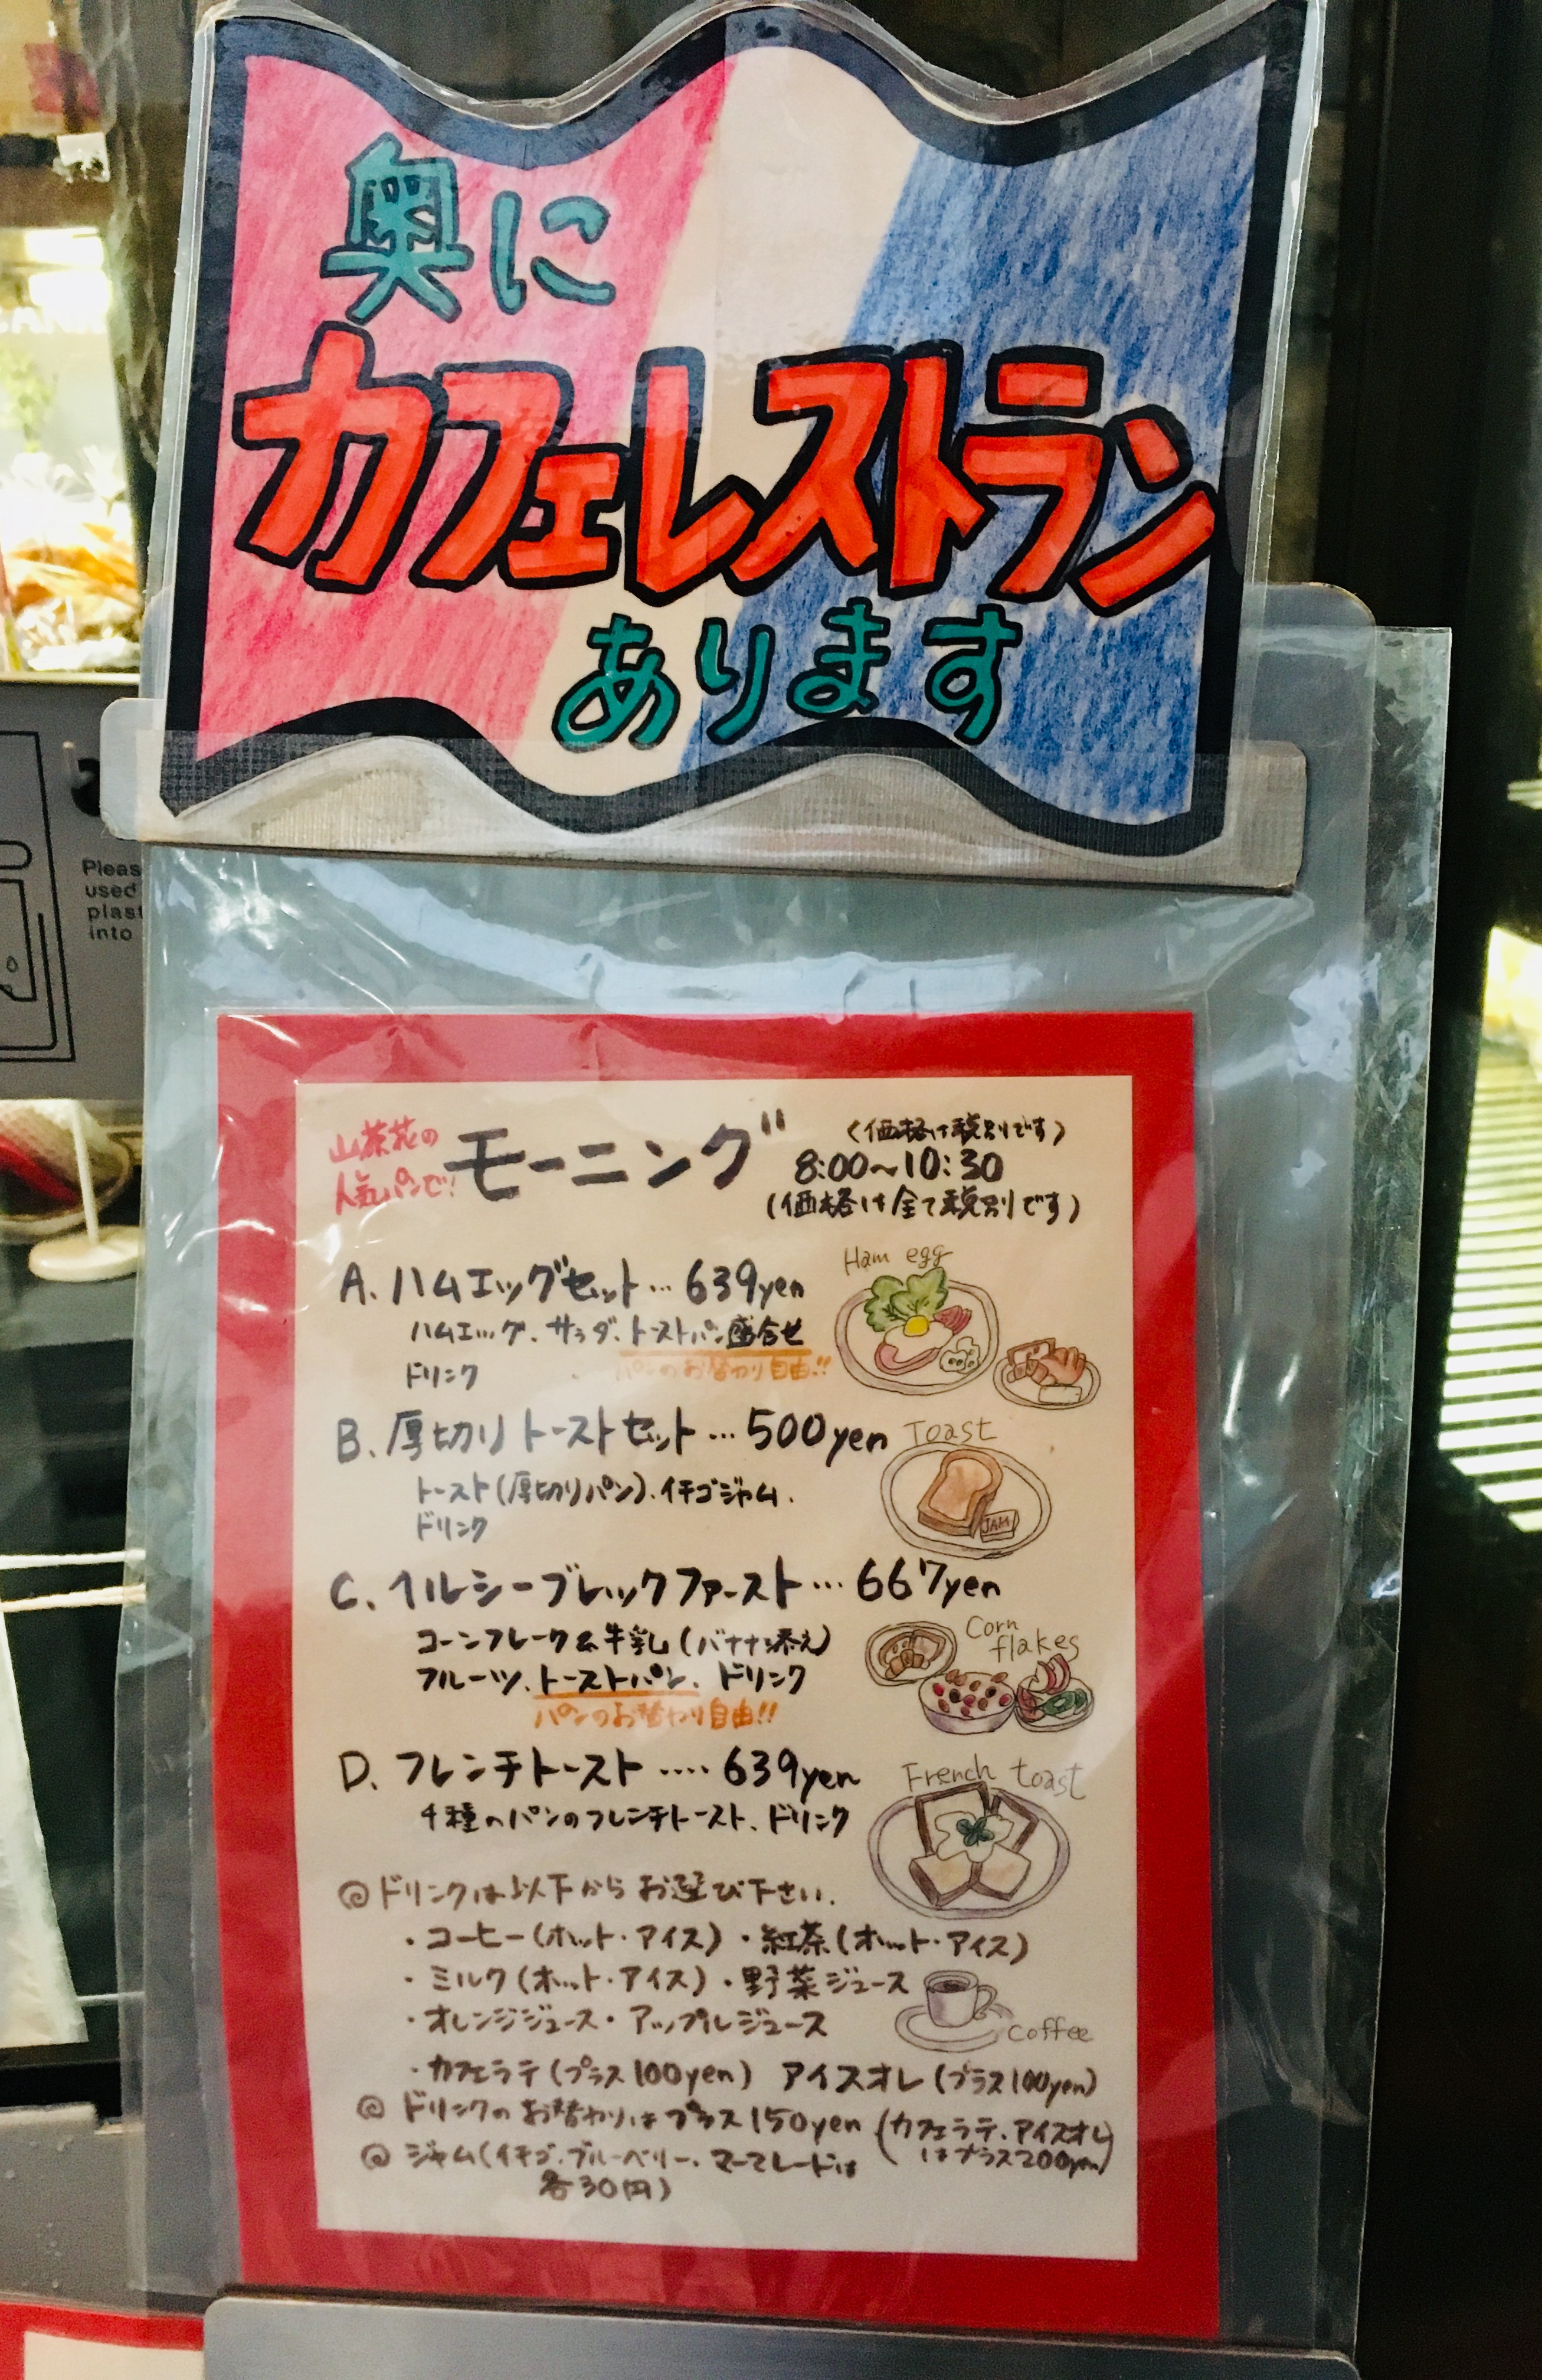 奥に
カフェレストラン
あります
Pleas
used
plast
into
山茶花の
人気パンで!
モーニング
(価格は税別です)
8:00~10:30
(価格は全て税別です)
A. ハムエッグセット… 639yen
Ham egg
ハムエッグ、サラダ、トーストパン盛合せ
パンのお替わり自由!!
ドリンク
B. 厚切りトーストセット… 500yen
Toast
トースト(厚切りパン)、イチゴジャム、
ドリンク
JAM
C. ヘルシーブレックファースト… 667yen
コーンフレーク&牛乳(バナナ添え)
Corn
flakes
フルーツ、トーストパン、ドリンク
パンのお替わり自由!!
D. フレンチトースト‥‥ 639yen
French toast
4種のパンのフレンチトースト、ドリンク
◎ドリンクは以下からお選び下さい。
・コーヒー(ホット・アイス)・紅茶(ホット・アイス)
・ミルク(ホット・アイス)・野菜ジュース
・オレンジジュース・アップルジュース
coffee
・カフェラテ(プラス100yen) アイスオレ(プラス100yen)
◎ ドリンクのお替わりはプラス150yen (カフェラテ、アイスオレ
はプラス200yen)
◎ ジャム(イチゴ、ブルーベリー、マーマレードは
各30円)